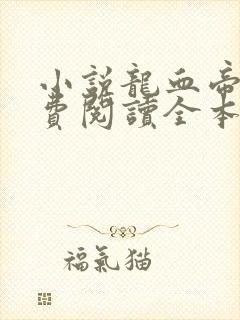 小説龍血帝
費閱讀全本
福氣猫